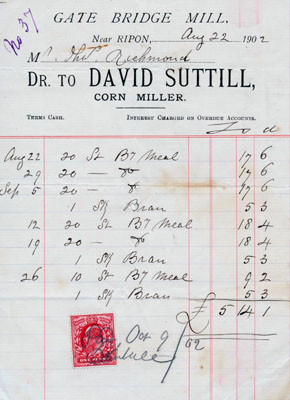 No 37
GATE BRIDGE MILL,
Near RIPON, Aug 22 1902
Mr. Thos Richmond
DR. TO DAVID SUTTILL,
CORN MILLER.
TERMS CASH. INTEREST CHARGED ON OVERDUE ACCOUNTS.
£ s d
Aug 22 20 St By Meal 17 6
29 20 — do 17 6
Sep 5 20 — do 17 6
1 Sk Bran 5 3
12 20 St By Meal 18 4
19 20 — do 18 4
1 Sk Bran 5 3
26 10 St By Meal 9 2
1 Sk Bran 5 3
£ 5 14 1
Oct 9/02
Suttill